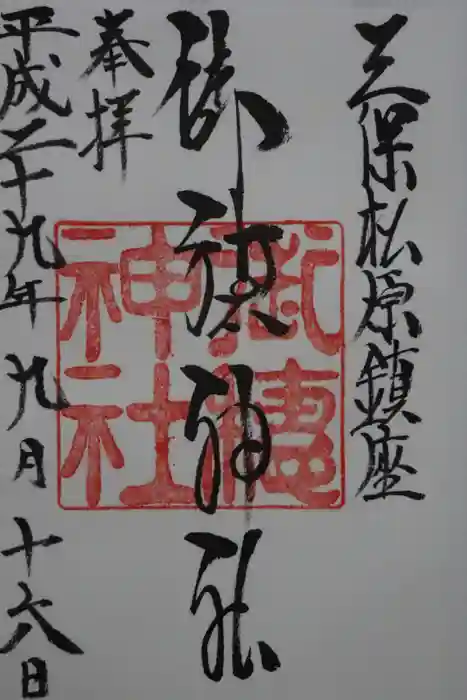 三保松原鎮座
御穂神社
御穂
神社
奉拝
平成二十九年九月十六日